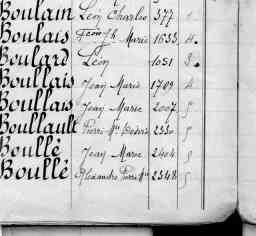 Boulam Léon Charles 377
Boulais Fçois Jh Marie 1633 4.
Boulard Léon 1051 8.
Boullais Jean Marie 1709 4
Boullais Jean Marie 2007 5
Boullault Pierre Mie 2330 5
Boullé Jean Marie 2404 5
Boullé Alexandre Pierre Mie 2548 5